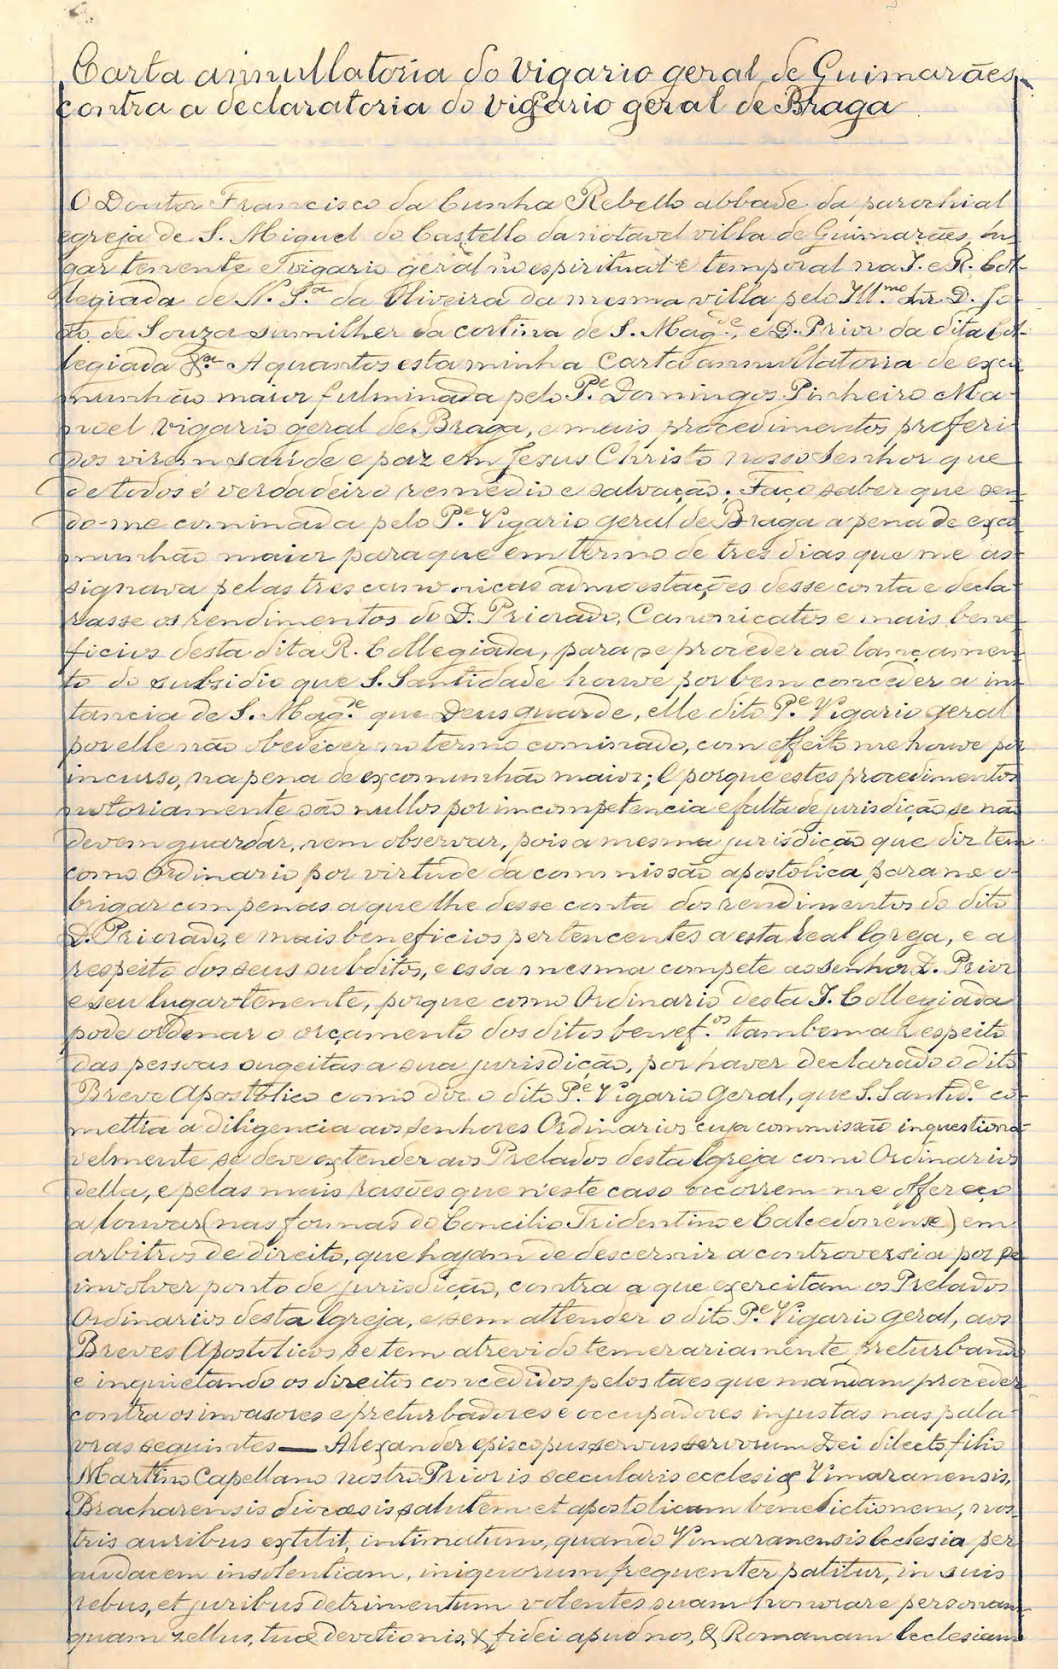 Carta annullatoria do vigario geral de Guimarães
contra a declaratoria do vigario geral de Braga
O Doutor Francisco da Cunha Rebello abbade da parochial
egreja de S. Miguel do Castello da notavel villa de Guimarães, lu-
gar tenente e vigario geral no espiritual e temporal na I. e R. Col-
legiada de N. Sra da Oliveira da mesma villa pelo Illmo Snr. D. Jo-
ão de Souza sumilher da cortina de S. Magde, e D. Prior da dita Col-
legiada &a. A quantos esta minha Carta annullatoria de exco-
munhão maior fulminada pelo Pe Domingos Pinheiro Ma-
noel vigario geral de Braga, e mais procedimentos preferi-
dos virem saúde e paz em Jesus Christo nosso Senhor que
de todos é verdadeiro remedio e salvação. Faço saber que sen-
do-me cominada pelo Pe Vigario geral de Braga a pena de exco-
munhão maior para que em termo de tres dias que me as-
signava pelas tres canonicas admoestações desse conta e decla-
rasse os rendimentos do D. Priorado, Canonicatos e mais bene-
ficios desta dita R. Collegiada, para se proceder ao lançamen-
to do subsidio que S. Santidade houve por bem conceder a ins-
tancia de S. Magde que Deus guarde, elle dito Pe Vigario geral
por elle não obedecer no termo cominado, com effeito me houve por
incurso, na pena de excomunhão maior; E porque estes procedimentos
notoriamente são nullos por incompetencia e falta de jurisdição se não
devem guardar, nem observar, pois a mesma jurisdição que diz tem
como Ordinario por virtude da commissão apostolica para me o-
brigar com penas a que lhe desse conta dos rendimentos do dito
D. Priorado, e mais beneficios pertencentes a esta Real Igreja, e a
respeito dos seus subditos, e essa mesma compete ao senhor D. Prior
e seu lugar-tenente, porque como Ordinario desta I. Collegiada
pode ordenar o orçamento dos ditos benef.os tambem a respeito
das pessoas sugeitas a sua jurisdição, por haver declarado o dito
Breve Apostolico como diz o dito Pe Vigario Geral, que S. Santide co-
mettia a diligencia aos senhores Ordinarios cuja commissão inquestiona-
velmente se deve extender aos Prelados desta Igreja como Ordinarios
della, e pelas mais rasões que n'este caso occorrem me offereço
a louvar (nas formas do Concilio Tridentino e Calcedonense) em
arbitros de direito, que hajam de descernir a controversia por se
involver ponto de jurisdição, contra a que exercitam os Prelados
Ordinarios desta Igreja, e sem attender o dito Pe Vigario geral, aos
Breves Apostolicos se tem atrevido temerariamente preturbando
e inquietando os direitos concedidos pelos taes que mandam proceder
contra os invasores e preturbadores e occupadores injustas nas pala-
vras seguintes — Alexander episcopus servus servorum Dei dilecto filio
Martino Capellano nostro Prioris sæcularis ecclesiæ Vimaranensis,
Bracharensis diocæsis salutem et apostolicam benedictionem, nos-
tris auribus extitit, intimatum, quando Vimaranensis Ecclesia per
audacem insolentiam, iniquorum frequenter patitur, in suis
rebus, et juribus detrimentum volentes suam honorare personam
quam zellus, tuæ devotionis, & fidei apud nos, & Romanam Ecclesiam